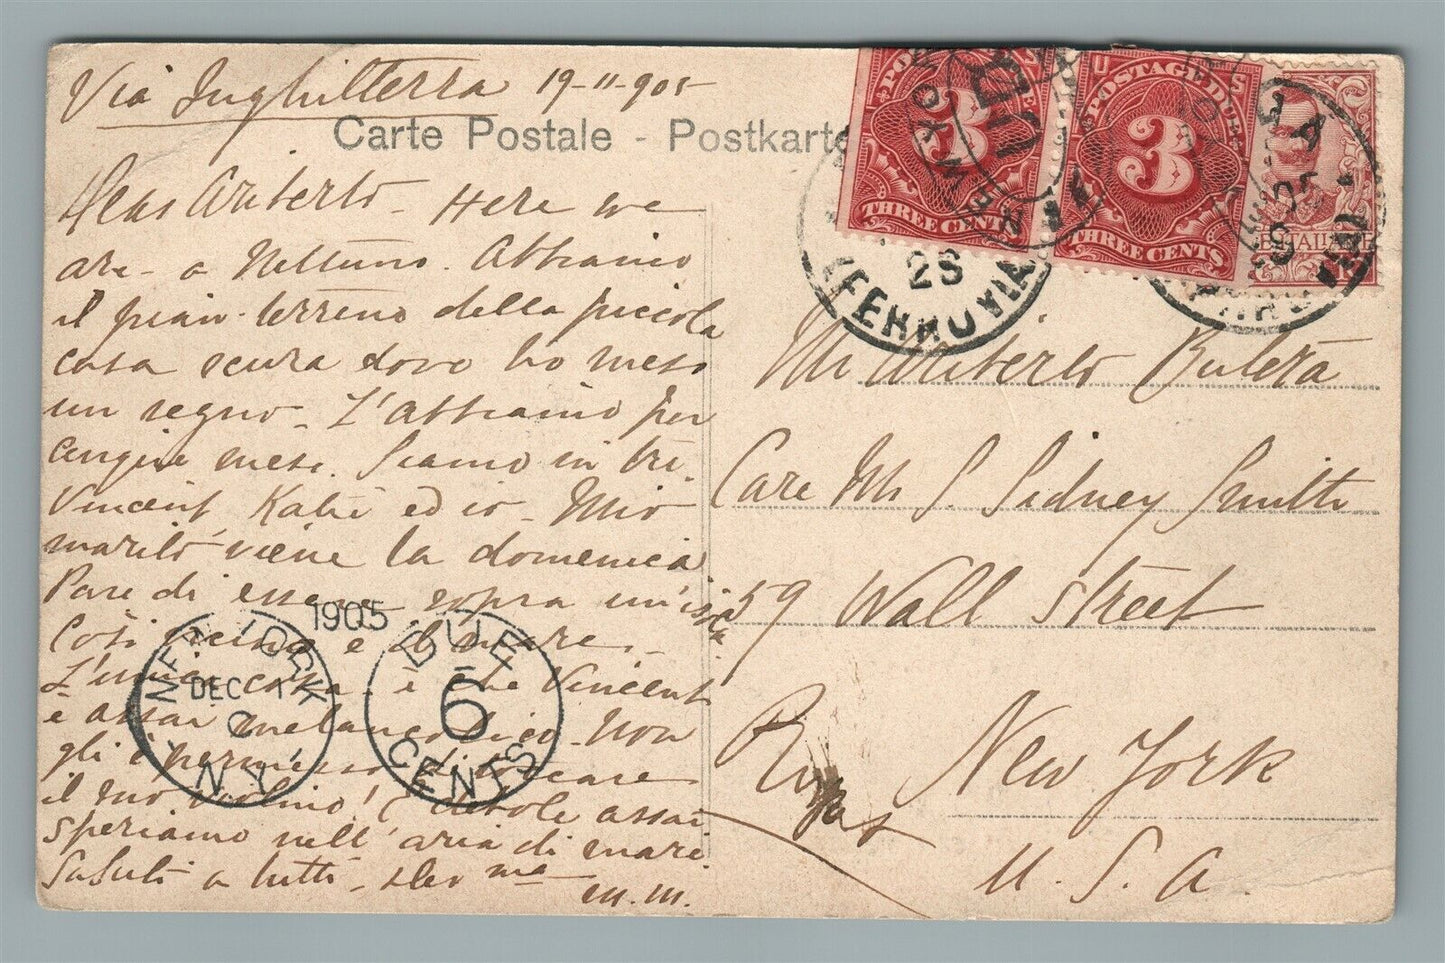 Via Inghilterra 19-11-905
Carte Postale - Postkarte
Dear Ariberto - Here we
are - a Nettuno. Abbiamo
il pian-terreno della piccola
casa scura dove ho messo
un segno - L'abbiamo per
cinque mesi. Siamo in tre.
Vincent, Katie ed io - Mio
marito viene la domenica
Pare di essere sopra un'isola
Così vicino è il mare.
L'unica cosa è che Vincent
è assai melanconico - Non
gli è permesso di toccare
il suo violino! È debole assai
speriamo nell'aria di mare
Saluti a tutti - 
M.M.
1905
DEC 1
N.Y.
DUE
6
CENTS
POSTAGE DUE
3
THREE CENTS
U S
POSTAGE DUE
3
THREE CENTS
28
(FERROVIA)
Mr Ariberto
Care Mr S. Sidney Smith
59 Wall Street
New York
U. S. A.